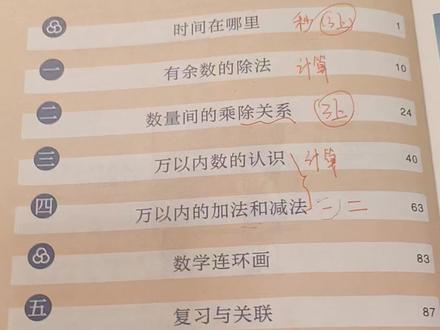 时间在哪里 秒 (3上) 1
一 有余数的除法 计算 10
二 数量间的乘除关系 (3上) 24
三 万以内数的认识 计算 40
四 万以内的加法和减法 二 63
数学连环画 83
五 复习与关联 87